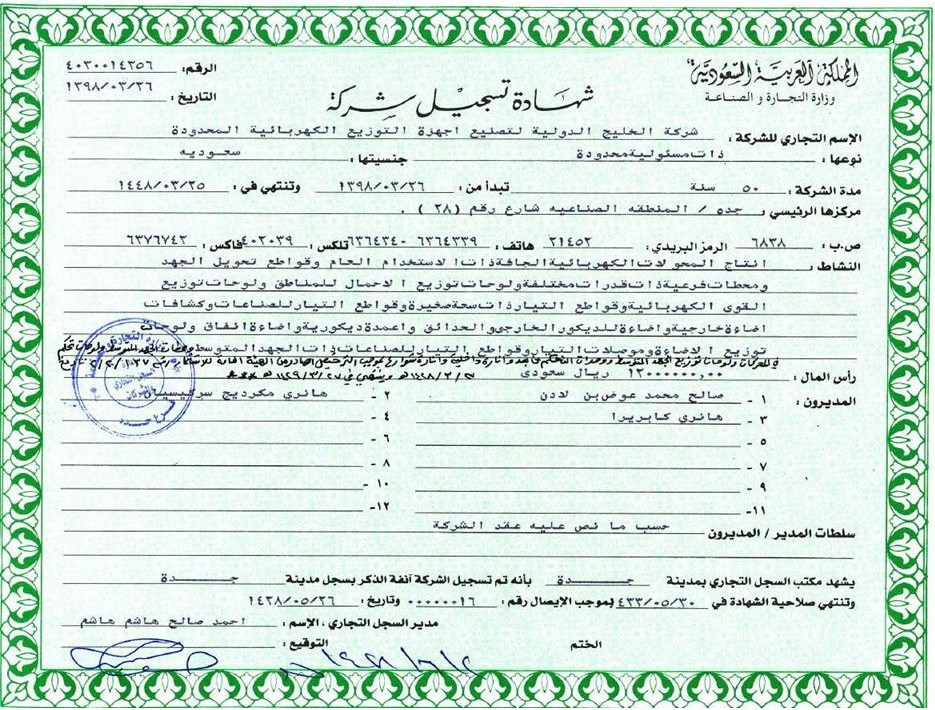 المملكة العربية السعودية
وزارة التجارة و الصناعة
شهادة تسجيل شركة
الرقم: ٤٠٣٠٠١٤٣٥٦
التاريخ: ١٣٩٨/٠٣/٢٦
الإسم التجاري للشركة: شركة الخليج الدولية لتصنيع اجهزة التوزيع الكهربائية المحدودة
نوعها: ذات مسئولية محدودة جنسيتها: سعوديه
مدة الشركة: ٥٠ سنة تبدأ من: ١٣٩٨/٠٣/٢٦ وتنتهي في: ١٤٤٨/٠٣/٢٥
مركزها الرئيسي: جده / المنطقه الصناعيه شارع رقم (٢٨) .
ص.ب: ٦٨٣٨ الرمز البريدي: ٢١٤٥٢ هاتف: ٦٣٦٤٣٣٩ ٦٣٦٤٣٤٠ تلكس: ٤٠٢٠٣٩ فاكس: ٦٣٧٦٧٤٢
النشاط: انتاج المحولات الكهربائية الجافة ذات الاستخدام العام وقواطع تحويل الجهد
ومحطات فرعية ذات قدرات مختلفة ولوحات توزيع الاحمال للمناطق ولوحات توزيع
القوى الكهربائية وقواطع التيار ذات سحة صغيرة وقواطع التيار للصناعات وكشافات
اضاءة خارجية واضاءة للديكور الخارجي والحدائق واعمدة ديكورية واضاءة انفاق ولوحات
توزيع الاضاءة وموصلات التيار وقواطع التيار للصناعات ذات الجهد المتوسط
رأس المال: ١٢٠٠٠٠٠٠,٠٠ ريال سعودي
المديرون: ١ - صالح محمد عوض بن لادن ٢ - هانري مكرديج سركيسيان
٣ - هانري كابريرا ٤ -
٥ - ٦ -
٧ - ٨ -
٩ - ١٠ -
١١- ١٢-
سلطات المدير / المديرون حسب ما نص عليه عقد الشركة
يشهد مكتب السجل التجاري بمدينة جــــدة بأنه تم تسجيل الشركة آنفة الذكر بسجل مدينة جــــدة
وتنتهي صلاحية الشهادة في ٤٣٣/٠٥/٣٠ بموجب الإيصال رقم: ٠٠٠٠٠٠١٦ وتاريخ: ١٤٢٨/٠٥/٢٦
مدير السجل التجاري، الإسم: احمد صالح هاشم هاشم
الختم التوقيع: